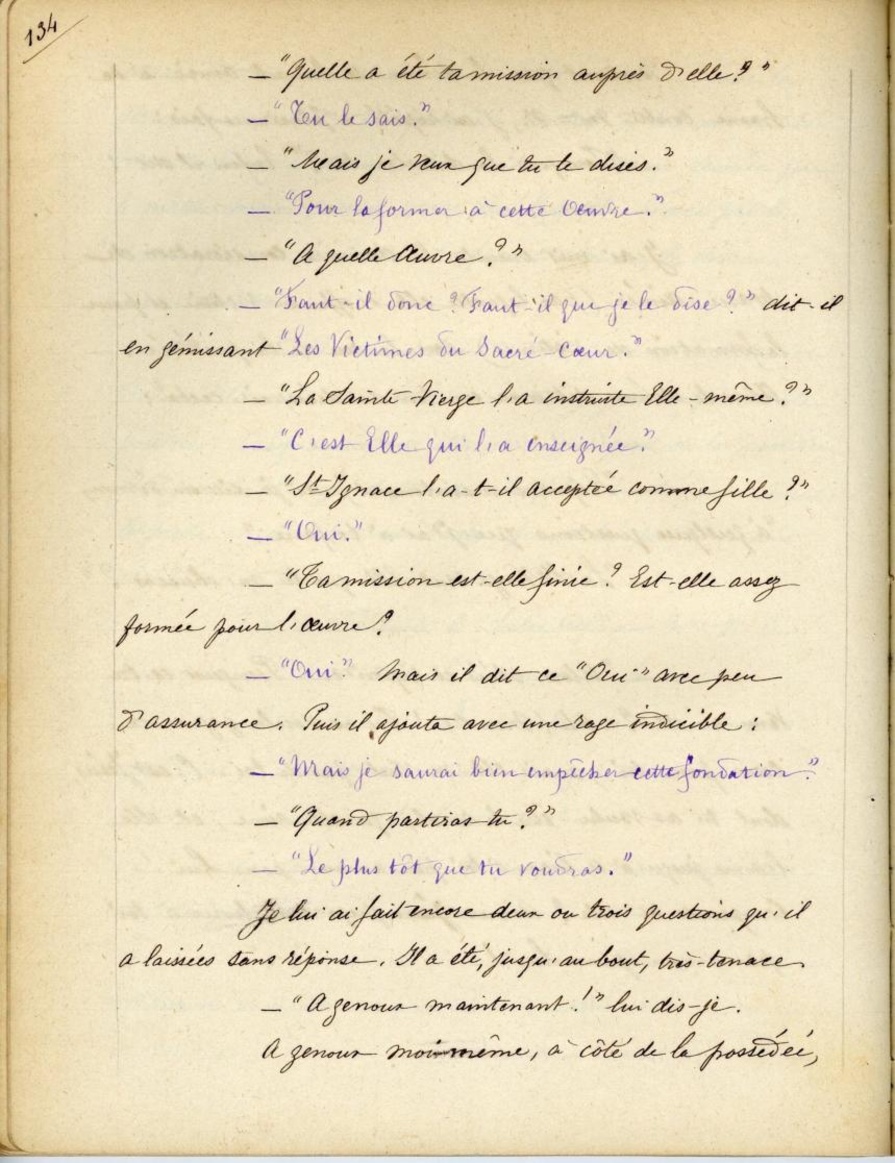 134
— "Quelle a été ta mission auprès d'elle?"
— "Tu le sais."
— "Mais je veux que tu le dises."
— "Pour la former à cette Oeuvre."
— "A quelle Œuvre?"
— "Faut-il donc? Faut-il que je le dise?" dit-il
en gémissant "Les Victimes du Sacré-Cœur."
— "La Sainte Vierge l'a instruite Elle-même?"
— "C'est Elle qui l'a enseignée."
— "St Ignace l'a-t-il acceptée comme fille?"
— "Oui."
— "Ta mission est-elle finie? Est-elle assez
formée pour l'œuvre?
— "Oui." Mais il dit ce "Oui" avec peu
d'assurance. Puis il ajouta avec une rage indicible:
— "Mais je saurai bien empêcher cette fondation."
— "Quand partiras-tu?"
— "Le plus tôt que tu voudras."
Je lui ai fait encore deux ou trois questions qu'il
a laissées sans réponse. Il a été, jusqu'au bout, très-tenace.
— "A genoux maintenant!" lui dis-je.
A genoux moi-même, à côté de la possédée,